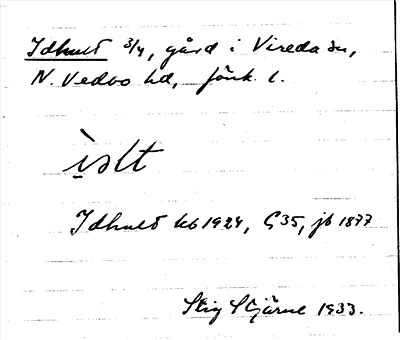 Idhult 3/4, gård i Vireda sn,
N. Vedbo hd, Jönk. l.
ìslt
Idhult kb 1924, G 35, jb 1877
Stig Stjärne 1933.